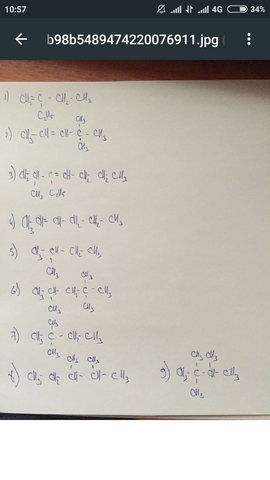 10:57
4G 34%
b98b5489474220076911.jpg (
1) CH₂= C - CH₂ - CH₃
C₂H₅
CH₃
2) CH₃ - CH = CH - C - CH₃
CH₃
3) CH - C = CH - CH₂ CH₂ CH₃
CH₃ C₂H₅
4) CH₃ CH= CH - CH₂ - CH₂ - CH₃
5) CH₃ - CH - CH₂ - CH₃
CH₃
CH₃
6) CH₃ CH - CH₂ C - CH₃
CH₃ CH₃
CH₃
7) CH₃ C - CH₂ - CH₃
CH₃
CH₃ CH₃
8) CH₃ - CH₂ - CH - CH - CH₃
CH₃ CH₃
9) CH₃ - C - CH - CH₃
CH₃